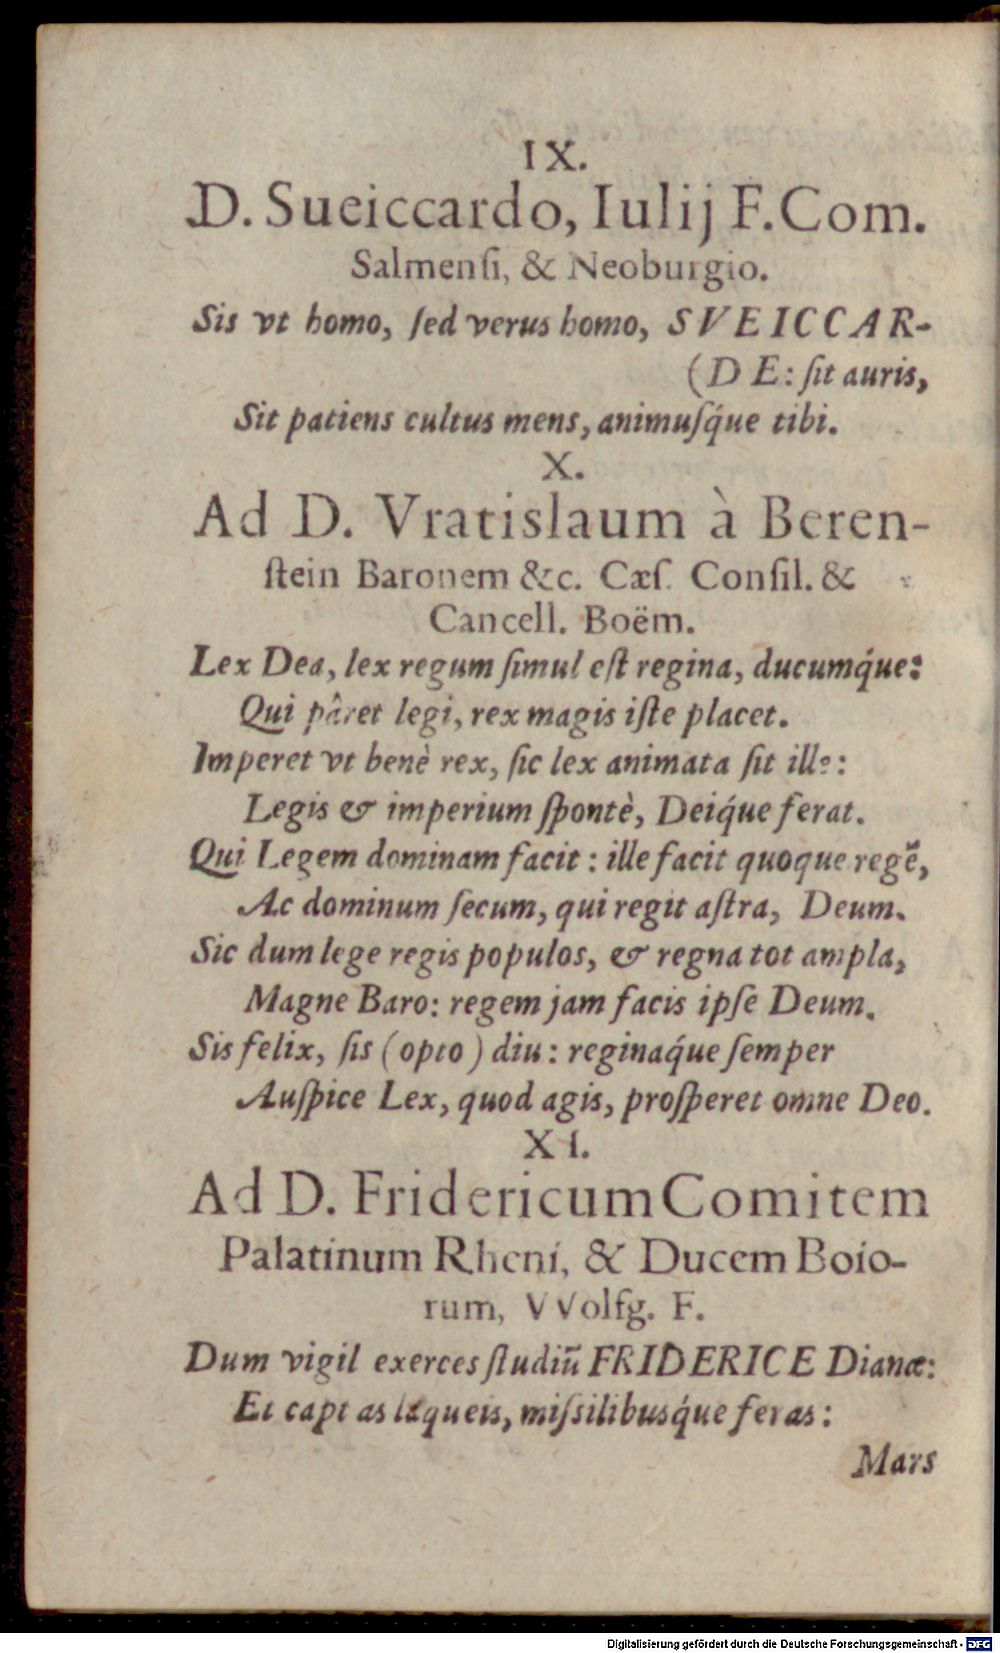 IX.
D. Sueiccardo, Iulij F. Com.
Salmensi, & Neoburgio.
Sis vt homo, sed verus homo, SVEICCAR-
(DE: ſit auris,
Sit patiens cultus mens, animuſq́ue tibi.
X.
Ad D. Vratislaum à Beren-
ſtein Baronem &c. Cæſ. Conſil. &
Cancell. Boëm.
Lex Dea, lex regum ſimul eſt regina, ducumq́ue:
Qui pâret legi, rex magis iſte placet.
Imperet vt benè rex, ſic lex animata ſit ille:
Legis & imperium ſpontè, Deiq́ue ferat.
Qui Legem dominam facit: ille facit quoque regē,
Ac dominum ſecum, qui regit aſtra, Deum.
Sic dum lege regis populos, & regna tot ampla,
Magne Baro: regem jam facis ipſe Deum.
Sis felix, ſis (opto) diu: reginaq́ue ſemper
Auſpice Lex, quod agis, proſperet omne Deo.
XI.
Ad D. Fridericum Comitem
Palatinum Rheni, & Ducem Boio-
rum, VVolfg. F.
Dum vigil exerces ſtudiū FRIDERICE Dianæ:
Et captas laqueis, miſsilibusq́ue feras:
Mars
Digitalisierung gefördert durch die Deutsche Forschungsgemeinschaft - DFG